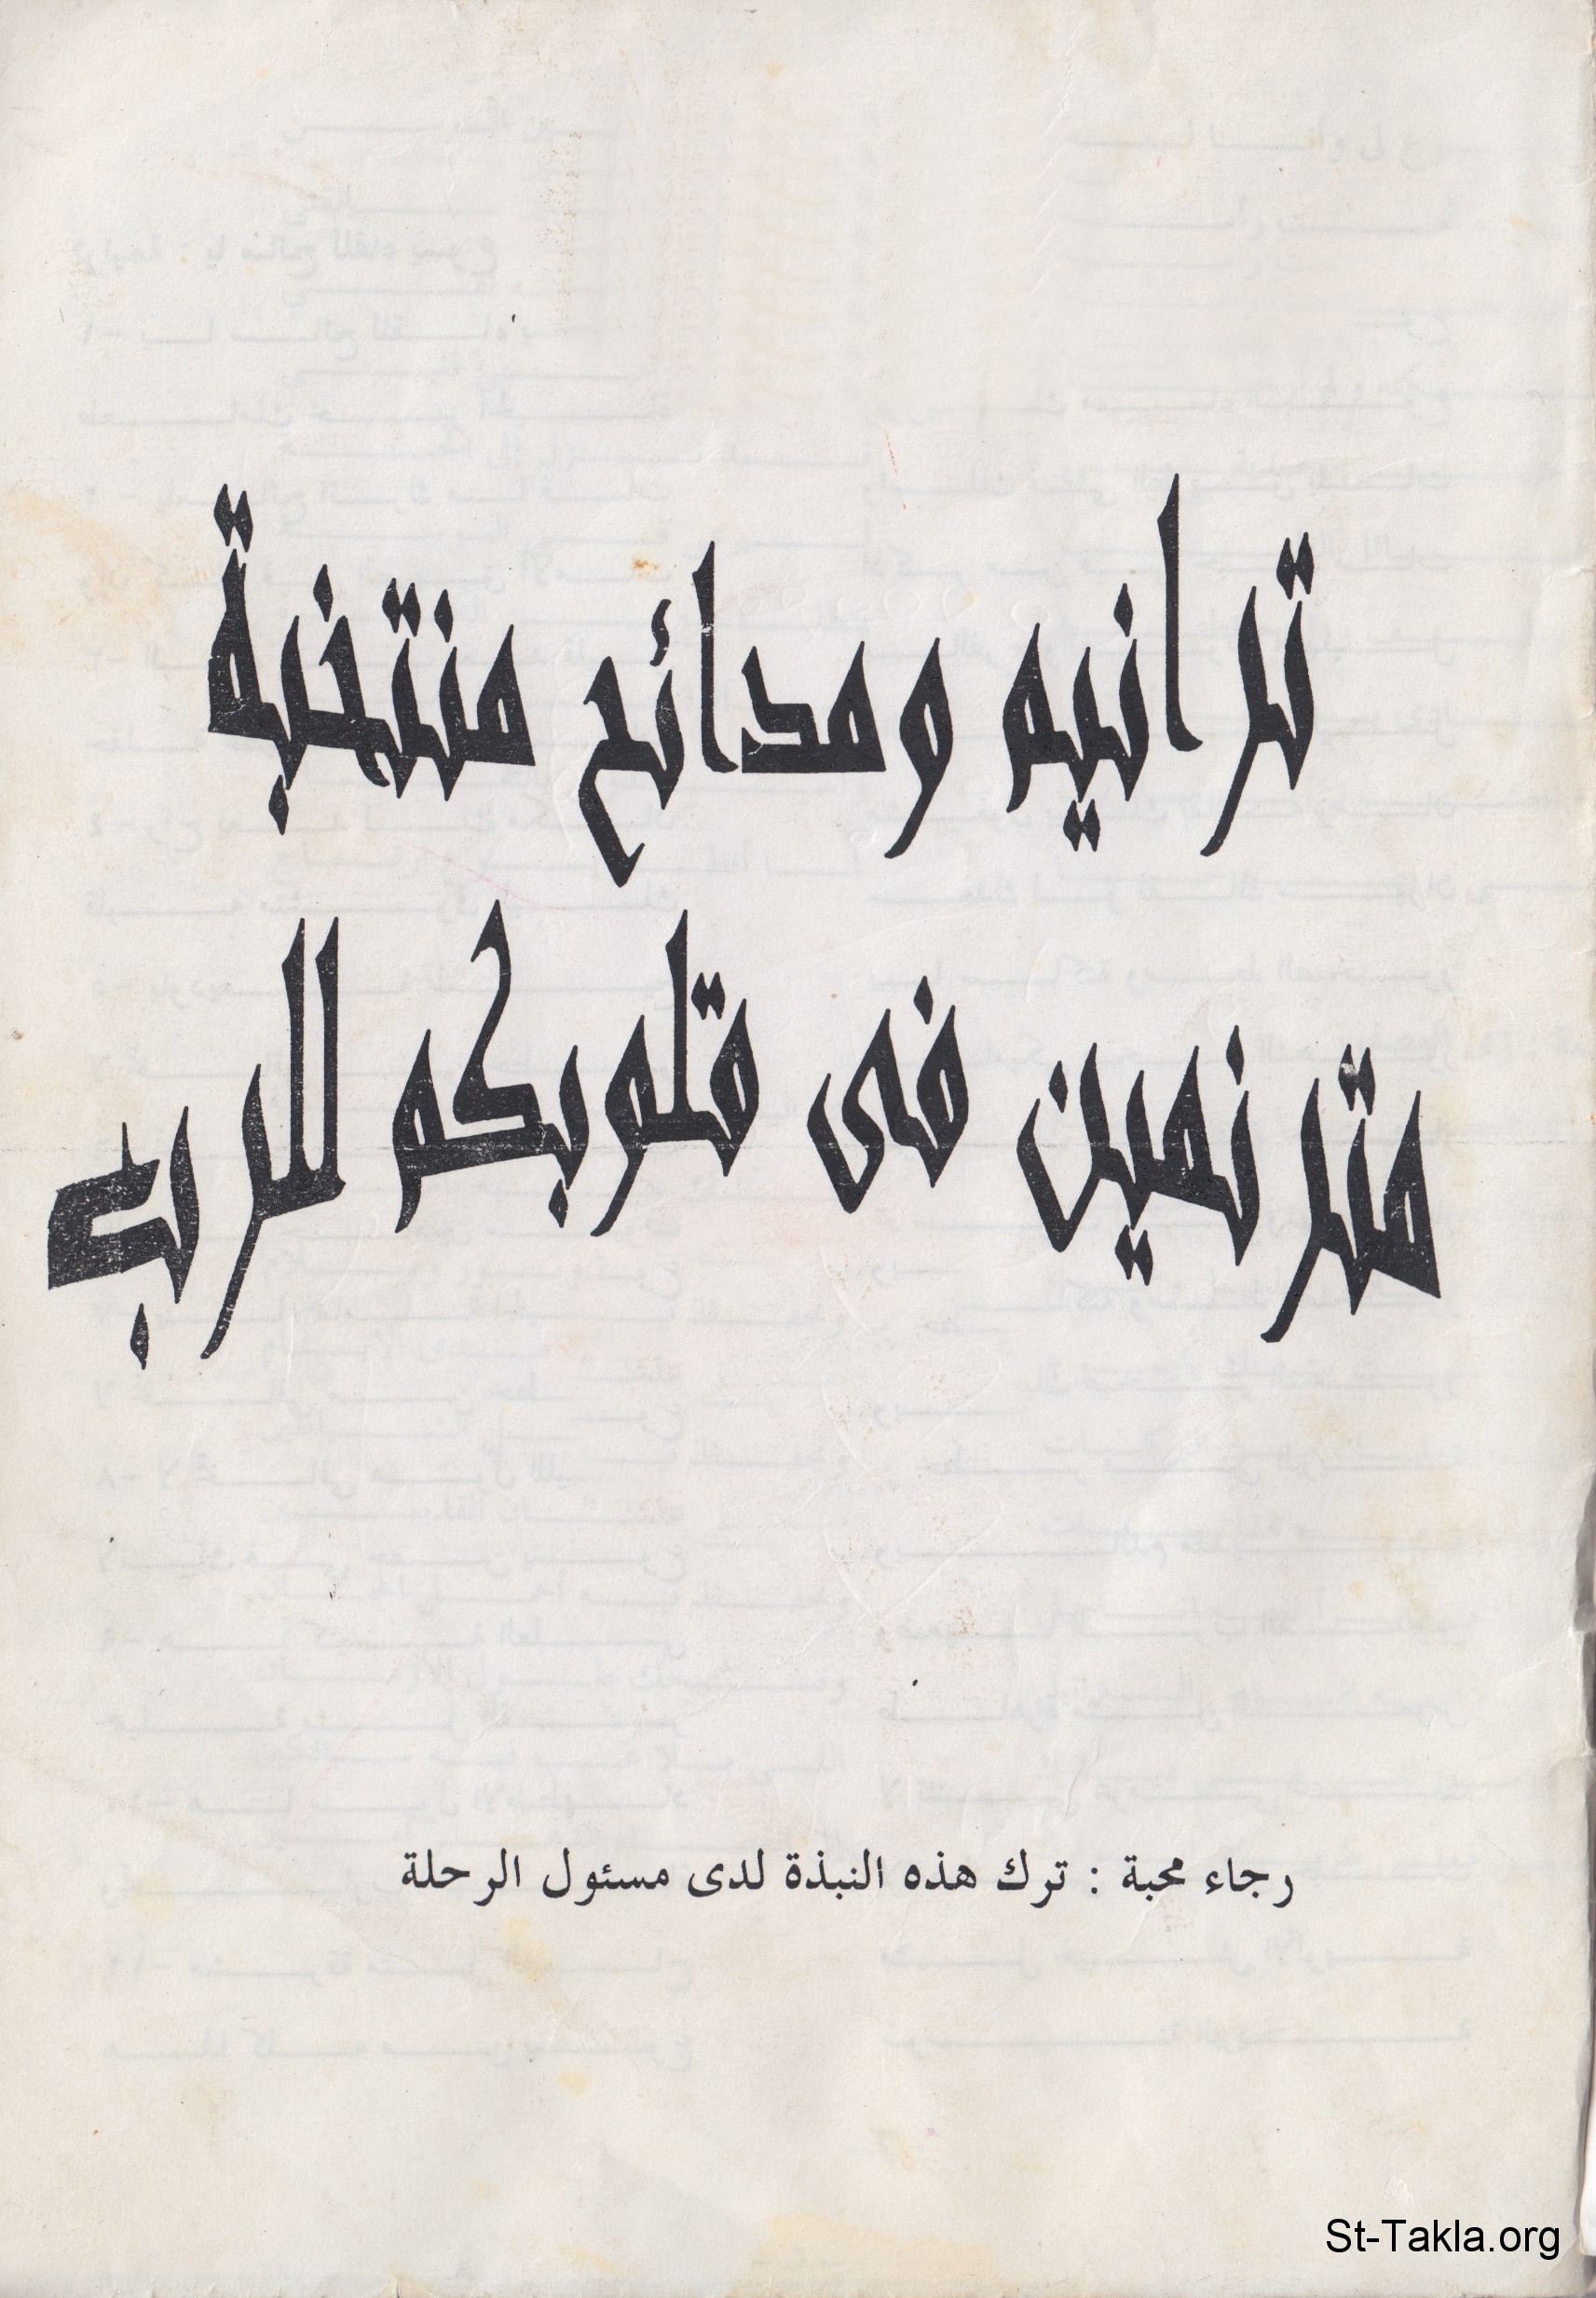 ترانيم ومدائح منتخبة
مترنمين فى قلوبكم للرب
رجاء محبة : ترك هذه النبذة لدى مسئول الرحلة
St-Takla.org